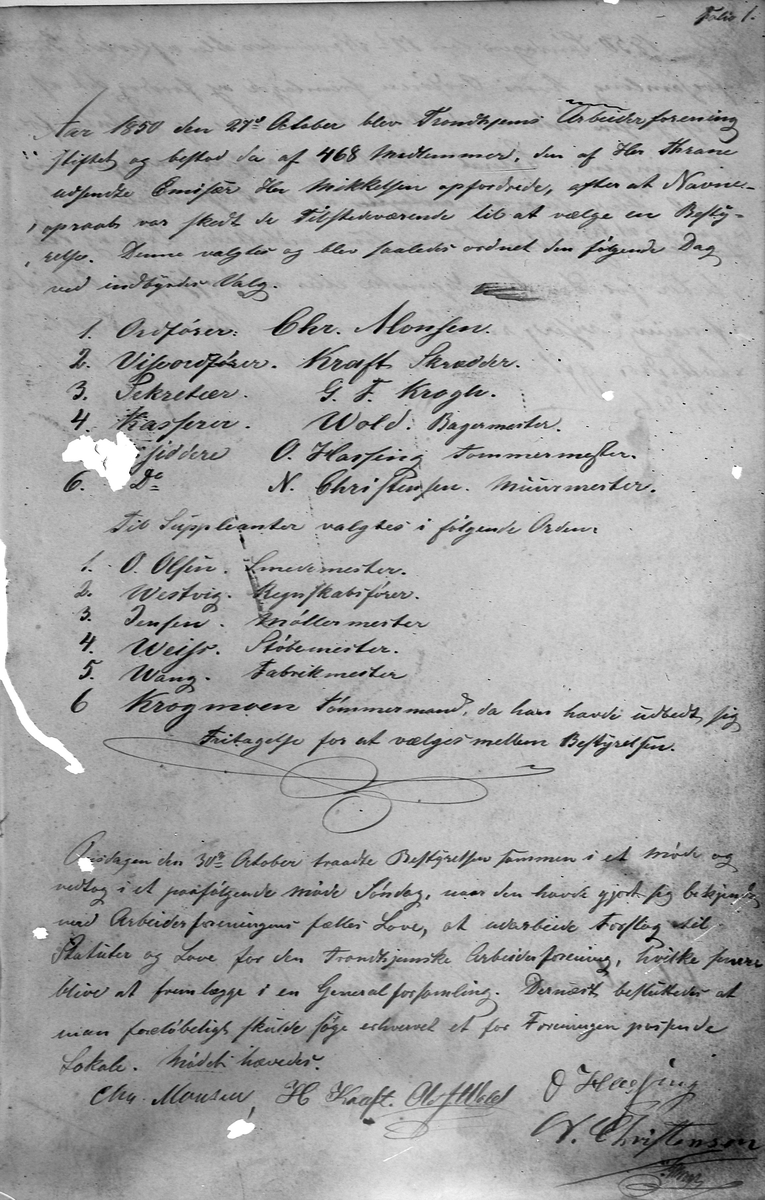 Folio 1.
Aar 1850 den 27de October blev Trondhjems Arbeiderforening
stiftet og bestod da af 468 Medlemmer, den af Hr Thrane
udsendte Emisær Hr Mikkelsen opfordrede, efter at Navne-
opraab var skedt de Tilstedeværende til at vælge en Besty-
relse. Denne valgtes og blev saaledes ordnet den følgende Dag
ved indbyrdes Valg.
1. Ordfører: Chr. Monsen.
2. Viseordfører. Kraft Skrædder.
3. Sekretær. G. F. Krogh.
4. Kasserer. Wold: Bagermester.
siddere O. Hassing Tømmermester.
6. Do N. Christensen. Muurmester.
Til Suppleanter valgtes i følgende Orden:
1. O. Olsen. Smedemester.
2. Westvig. Regnskabsfører.
3. Jensen. Møllermester
4. Weiss. Støbemester.
5. Wang. Fabrikmester
6 Krogmoen Tømmermand, da han havde udbedt sig
Fritagelse for at vælges mellem Bestyrelsen.
Onsdagen den 30te October traadte Bestyrelsen sammen i et Møde og
vedtog i et paafølgende Møde Søndag, naar den havde gjort sig bekjendt
med Arbeiderforeningens fælles Love, at udarbeide Forslag til
Statuter og Love for den Trondhjemske Arbeiderforening, hvilke senere
blive at fremlægge i en Generalforsamling. Dernæst besluttedes at
man foreløbeligt skulde søge erhvervet et for Foreningen passende
Lokale. Mødet hævedes.
Chr. Monsen, H Kraft. Wold O Hassing
N. Christensen